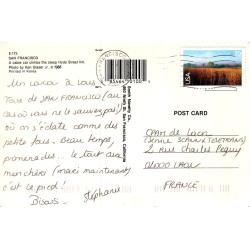 E 175
SAN FRANCISCO
A cable car climbs the steep Hyde Street hill.
Photo by Ken Glaser Jr. © 1986
Printed in Korea
Smith Novelty Co.
San Francisco, California
USA
POST CARD
Un coucou à tous
de SAN FRANCISCO (au
cas où vous ne le sauriez pas)
où on s'éclate comme des
petits fous. Beau temps,
promenades... le tout aux
marchéri (mari maintenant)
c'est le pied!
Bisous
Stéphanie
CPAM de Laon
2 rue Charles Péguy
02000 LAON
FRANCE